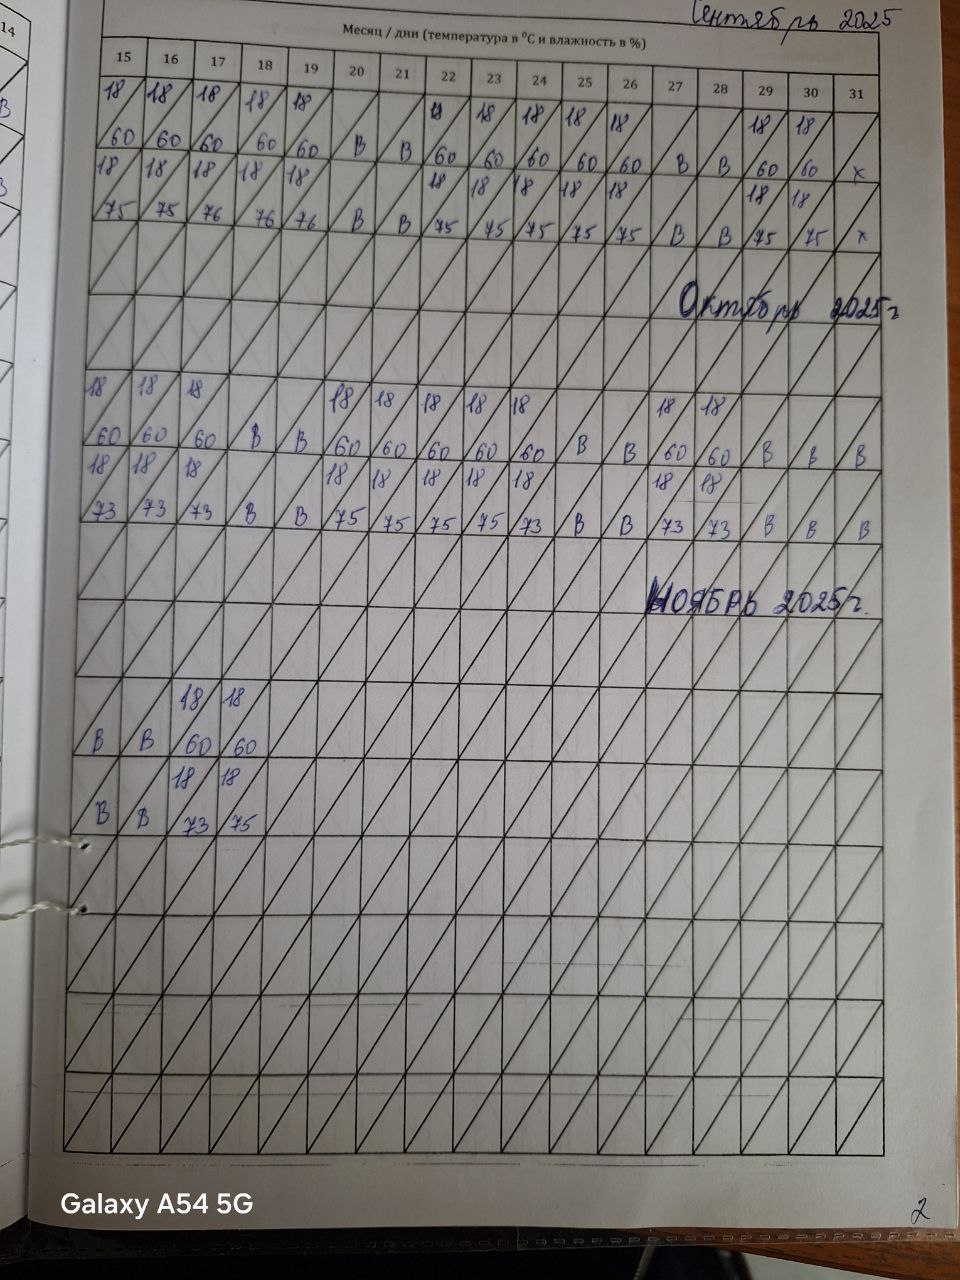 14
Сентябрь 2025
Месяц / дни (температура в ⁰С и влажность в %)
15 16 17 18 19 20 21 22 23 24 25 26 27 28 29 30 31
18 18 18 18 18 18 18 18 18 18 18
60 60 60 60 60 В В 60 60 60 60 60 В В 60 60 х
18 18 18 18 18 18 18 18 18 18 18 18
75 75 76 76 76 В В 75 75 75 75 75 В В 75 75 х
Октябрь 2025г
18 18 18 18 18 18 18 18 18 18
60 60 60 В В 60 60 60 60 60 В В 60 60 В В В
18 18 18 18 18 18 18 18 18 18
73 73 73 В В 75 75 75 75 73 В В 73 73 В В В
НОЯБРЬ 2025г.
18 18
В В 60 60
18 18
В В 73 75
Galaxy A54 5G
2